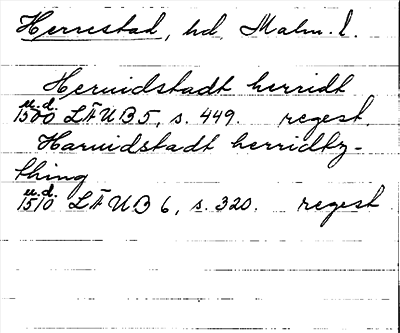 Herrestad, hd, Malm. l.
Heruidstadt herridt
u.d.
1500 LÄUB 5, s. 449. regest.
Haruidstadt herridtz-
thing
u.d.
1510 LÄUB 6, s. 320. regest